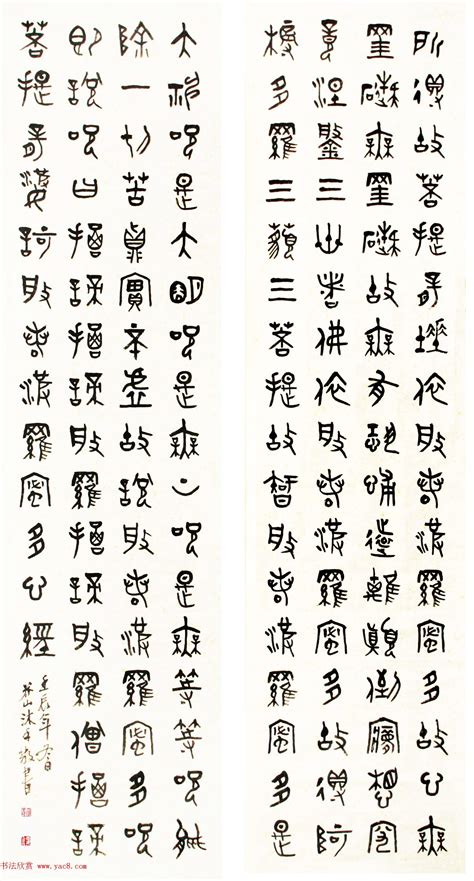 所得故菩提薩埵依般若波羅蜜多故心無
罣礙無罣礙故無有恐怖遠離顛倒夢想究
竟涅槃三世諸佛依般若波羅蜜多故得阿
耨多羅三藐三菩提故知般若波羅蜜多是
大神咒是大明咒是無上咒是無等等咒能
除一切苦真實不虛故說般若波羅蜜多咒
即說咒曰揭諦揭諦般羅揭諦般羅僧揭諦
菩提薩婆訶般若波羅蜜多心經
壬辰年冬日
山沐手敬書
书法欣赏 www.yac8.com